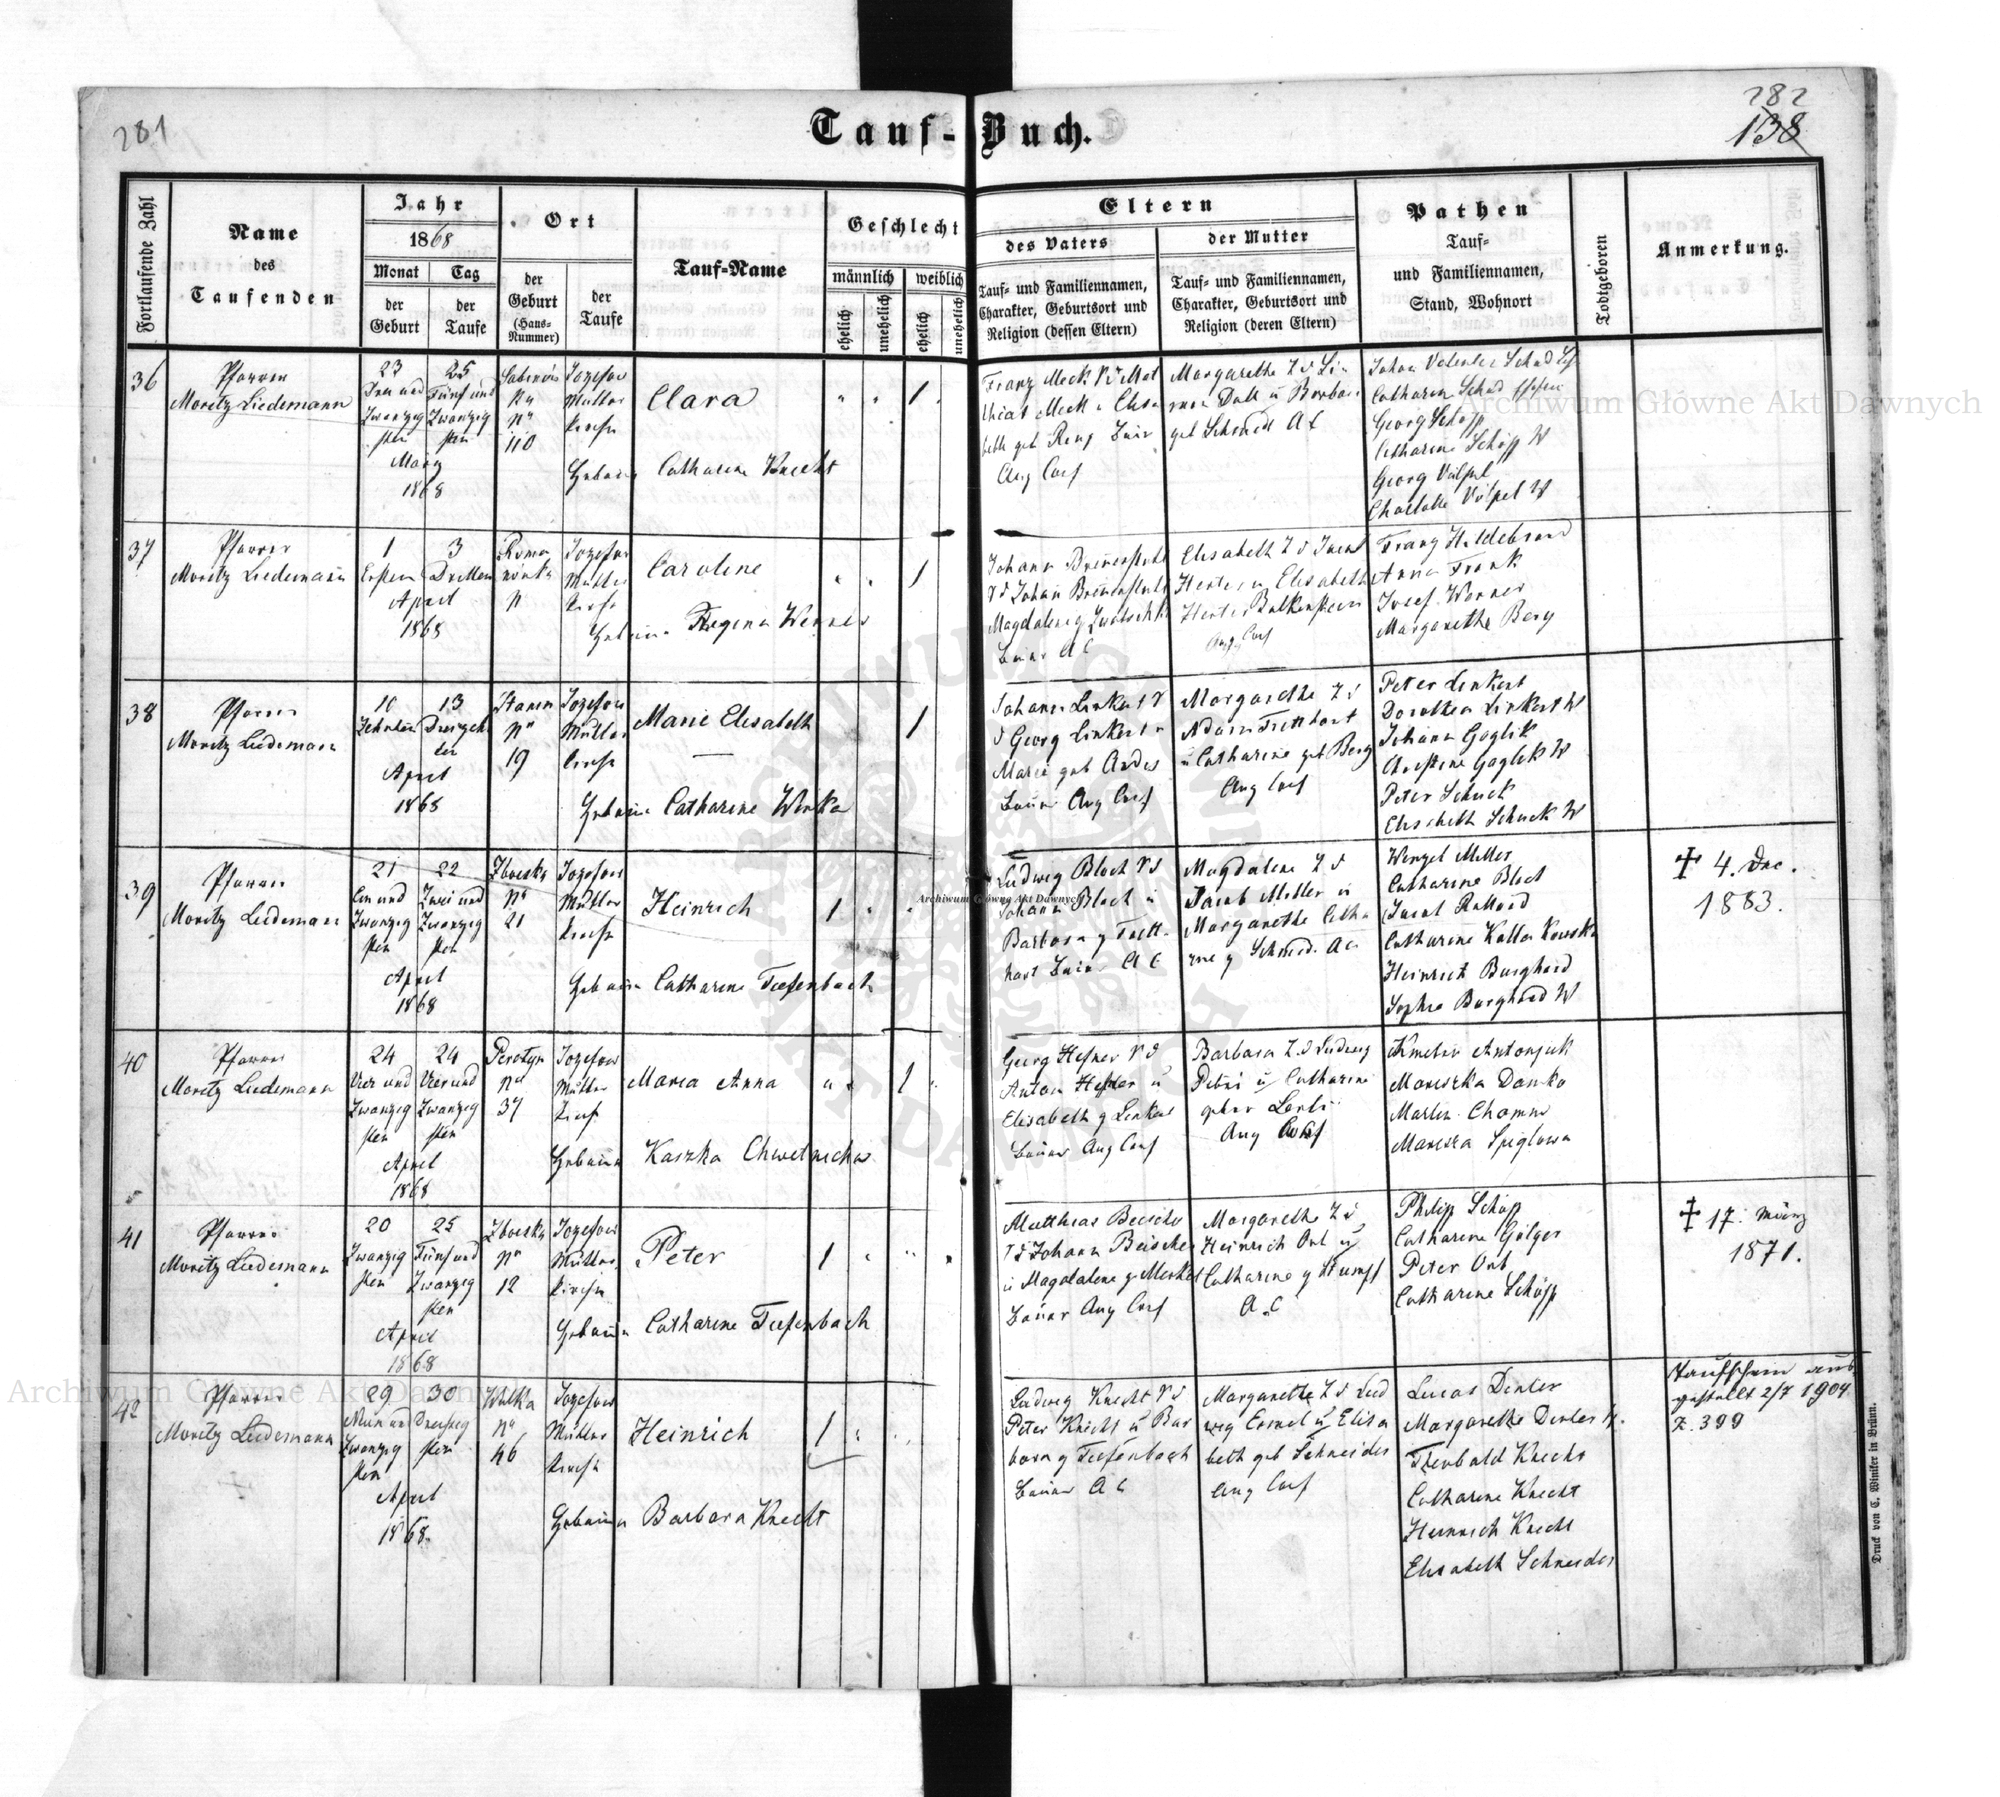 281
Tauf-Buch.
282
138
Fortlaufende Zahl
Name
des
Taufenden
Jahr
1868
Monat
Tag
der
Geburt
der
Taufe
Ort
der
Geburt
(Haus-
Nummer)
der
Taufe
Tauf-Name
Geschlecht
männlich
weiblich
ehelich
unehelich
ehelich
unehelich
Eltern
des Vaters
der Mutter
Tauf- und Familiennamen,
Charakter, Geburtsort und
Religion (dessen Eltern)
Tauf- und Familiennamen,
Charakter, Geburtsort und
Religion (deren Eltern)
Pathen
Tauf-
und Familiennamen,
Stand, Wohnort
Todtgeboren
Anmerkung.
36
Pfarrer
Moritz Liedemann
23
Drei und
Zwanzig
sten
25
Fünf und
Zwanzig
sten
März
1868
No
110
Jozefow
Mutter
Kirche
Clara
1
Catharine Knecht
Franz Meck
thias Meck u Elisa
beth geb
Aug Conf
Margarethe T d Si
mon Dall u Barbara
geb Schmid A C
Johann
Catharin Schad
Georg Schöpp
Catharine Schöpp W
Georg Völpel
Charlotte Völpel W
37
Pfarrer
Moritz Liedemann
1
Ersten
3
Dritten
April
1868
Jozefow
Mutter
Kirche
Caroline
1
Regina Werner
Johann
Magdalena g
Bauer A C
Elisabeth T d Jacob
Herter u Elisabeth
Herter
Aug Conf
Franz Hildebrand
Anna Frank
Josef Werner
Margarethe Berg
38
Pfarrer
Moritz Liedemann
10
Zehnten
13
Dreizeh
ten
April
1868
Stanin
No
19
Jozefow
Mutter
Kirche
Marie Elisabeth
1
Catharine Wirka
Johann Linkert S
d Georg Linkert u
Marie geb Andes
Bauer Aug Conf
Margarethe T d
Adam Tretthart
u Catharine geb Berg
Aug Conf
Peter Linkert
Dorothea Linkert W
Johann Goglik
Christine Goglik W
Peter Schuck
Elisabeth Schuck W
39
Pfarrer
Moritz Liedemann
21
Ein und
Zwanzig
sten
22
Zwei und
Zwanzig
sten
April
1868
Zboiska
No
21
Jozefow
Mutter
Kirche
Heinrich
1
Catharine Tiefenbach
Ludwig Bloch S d
Johann Bloch u
Barbara g Trett-
hart Bauer A C
Magdalene T d
Jacob Müller u
Margarethe Catha
rine g Schmid. A C
Wenzel Miller
Catharine Bloch
Jacob
Catharine
Heinrich Burghard
Sophie Burghard W
✝ 4. Dec.
1883.
40
Pfarrer
Moritz Liedemann
24
Vier und
Zwanzig
sten
24
Vier und
Zwanzig
sten
April
1868
Peratyn
No
37
Jozefow
Mutter
Kirche
Maria Anna
1
Kaszka
Georg Hefner S d
Anton Hefner u
Elisabeth g Linkert
Bauer Aug Conf
Barbara T d Ludwig
u Catharine
Aug Conf
Antonjuk
Mariszka Danko
Martin
Mariszka
41
Pfarrer
Moritz Liedemann
20
Zwanzig
sten
25
Fünf und
Zwanzig
sten
April
1868
Zboiska
No
12
Jozefow
Mutter
Kirche
Peter
1
Catharine Tiefenbach
Matthias Beischer
S d Johann Beischer
u Magdalene g Merkel
Bauer Aug Conf
Margarethe T d
Heinrich Ort u
Catharine g Stumpf
A C
Philipp Schöpp
Catharine Gölger
Peter Ort
Catharine Schöpp
✝ 17. März
1871.
42
Pfarrer
Moritz Liedemann
29
Neun und
Zwanzig
sten
30
Dreißig
sten
April
1868.
Wulka
No
46
Jozefow
Mutter
Kirche
Heinrich
1
Barbara Knecht
Ludwig Knecht S d
Peter Knecht u Bar
bara g Tiefenbach
Bauer A C
Margarethe T d Lud
wig u Elisa
beth geb Schneider
Aug Conf
Lucas Denler
Margarethe Denler W.
Theobald Knecht
Catharine Knecht
Heinrich Knecht
Elisabeth Schneider
Taufschein aus
gestellt 2/7 1904.
Z. 399
Druck von C. Winiker in Brünn.
Archiwum Główne Akt Dawnych
Archiwum Główne Akt Dawnych
Archiwum Główne Akt Dawnych